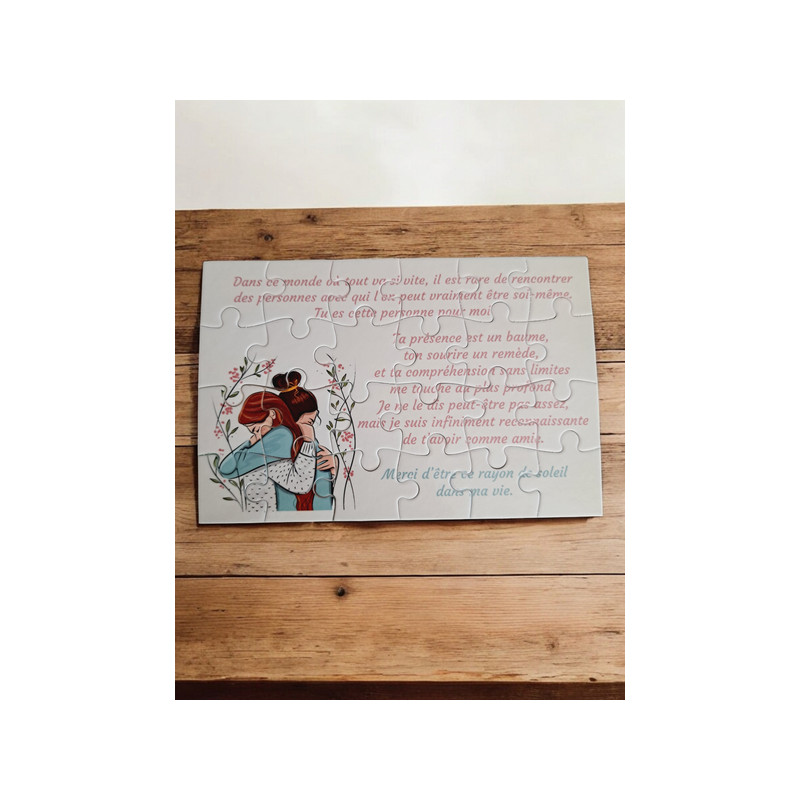 Dans ce monde où tout va si vite, il est rare de rencontrer
des personnes avec qui l'on peut vraiment être soi-même.
Tu es cette personne pour moi.
Ta présence est un baume,
ton sourire un remède,
et ta compréhension sans limites
me touche au plus profond.
Je ne le dis peut-être pas assez,
mais je suis infiniment reconnaissante
de t'avoir comme amie.
Merci d'être ce rayon de soleil
dans ma vie.